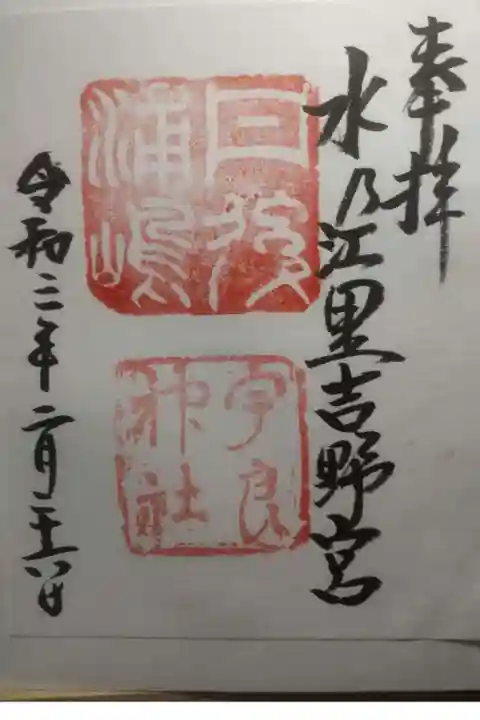 奉拝
水乃江里吉野宮
丹後
浦嶋
宇良
神社
令和三年二月